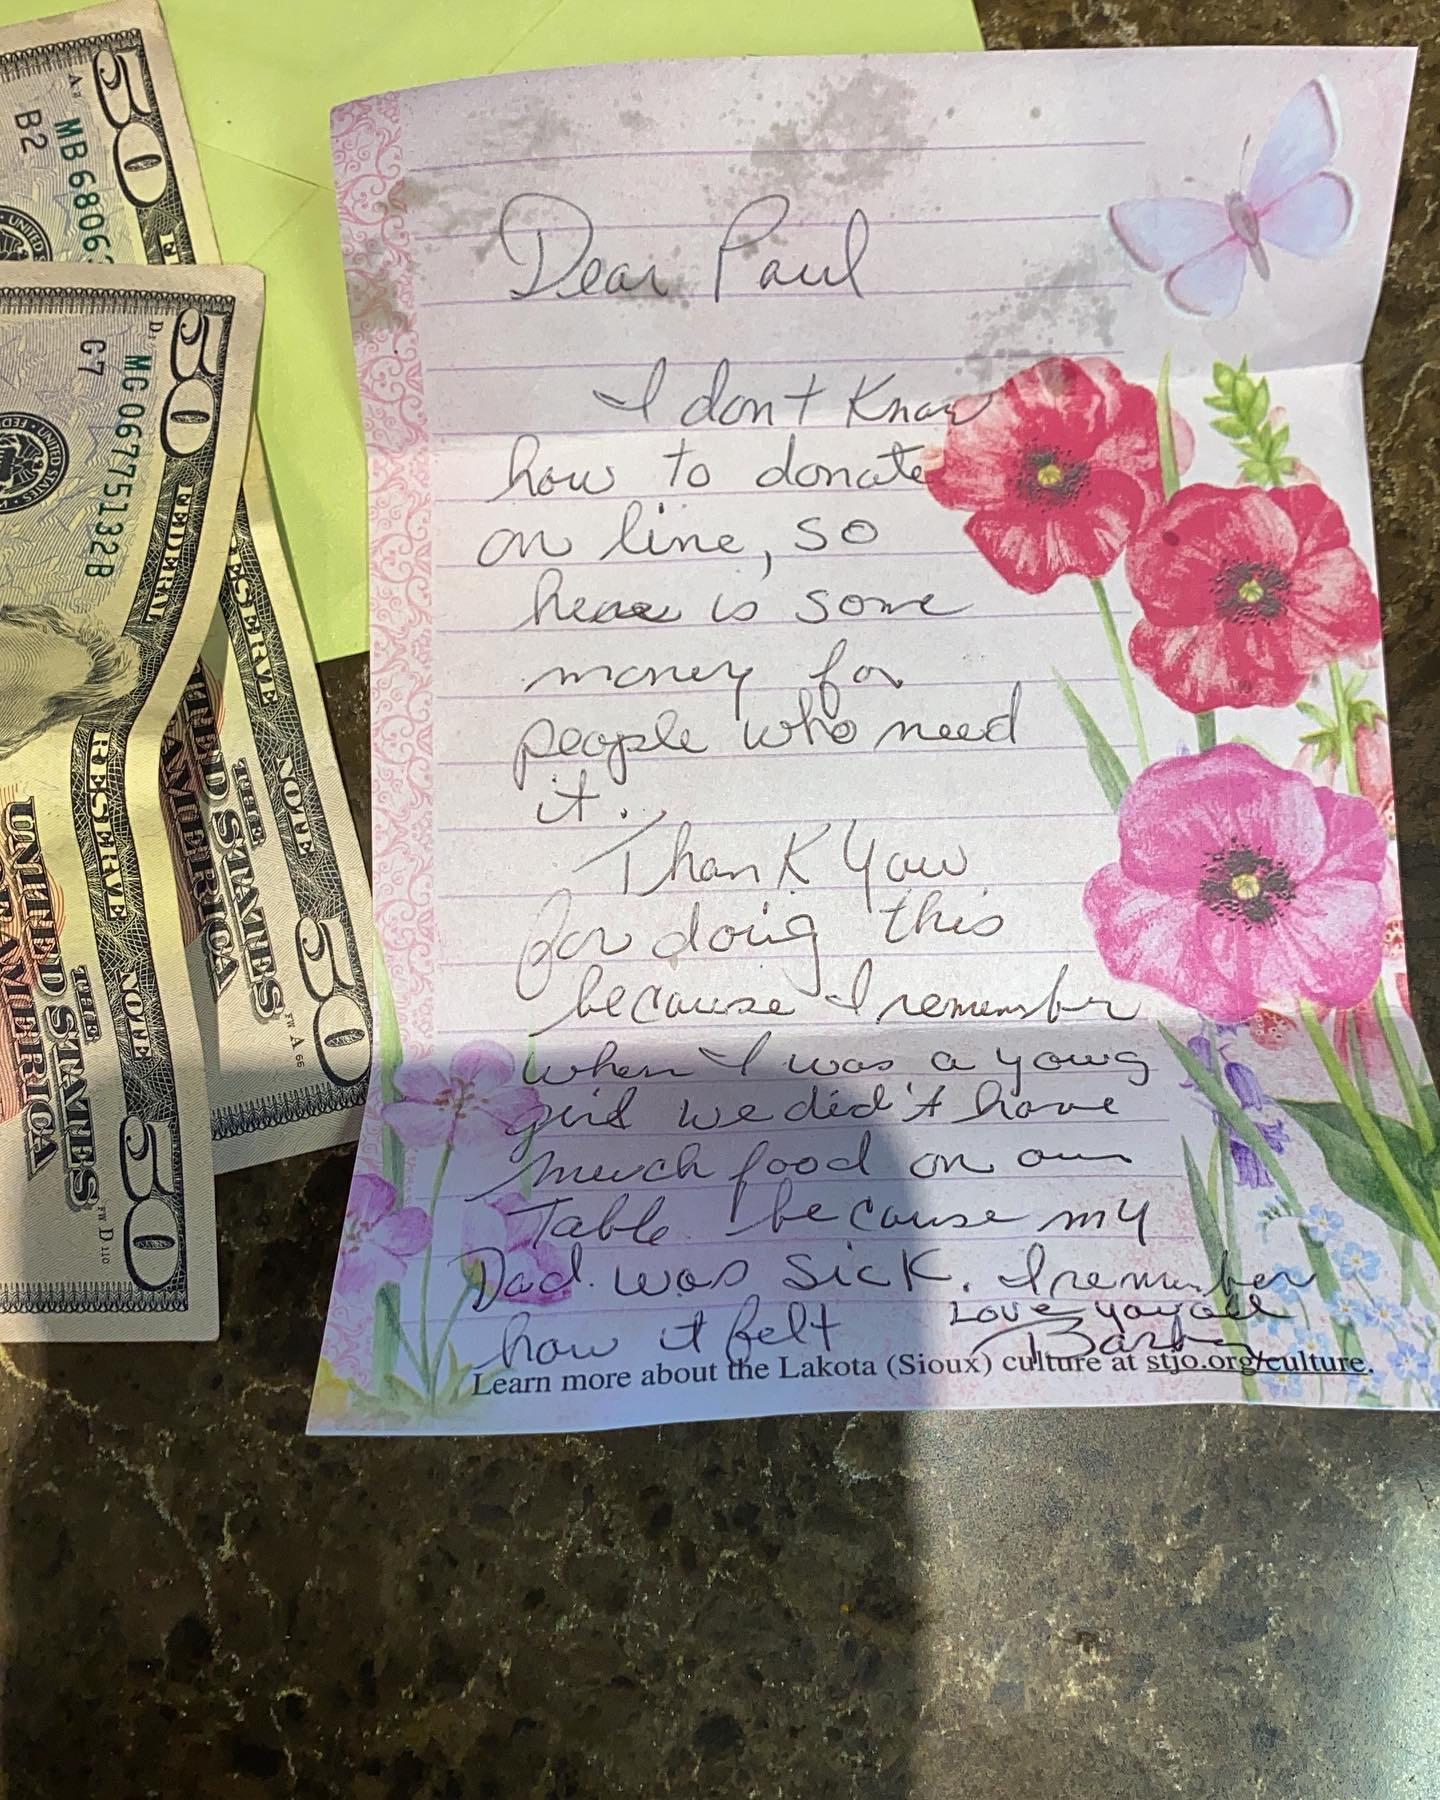 50
A
MB6806
B2
UNITED
50
MG06775132B
G7
UNITED STATES
FEDERAL
RESERVE
NOTE
THE
UNITED STATES
OF AMERICA
FW D 110
50
RESERVE
NOTE
THE
UNITED STATES
AMERICA
FW A 66
50
Dear Paul
I don't Know
how to donate
on line, so
here is some
money for
people who need
it.
Thank You
for doing this
because I remember
when I was a young
girl we did't have
much food on our
Table because my
Dad was sick. I remember
how it felt
Love
Barb
Learn more about the Lakota (Sioux) culture at stjo.org/culture.